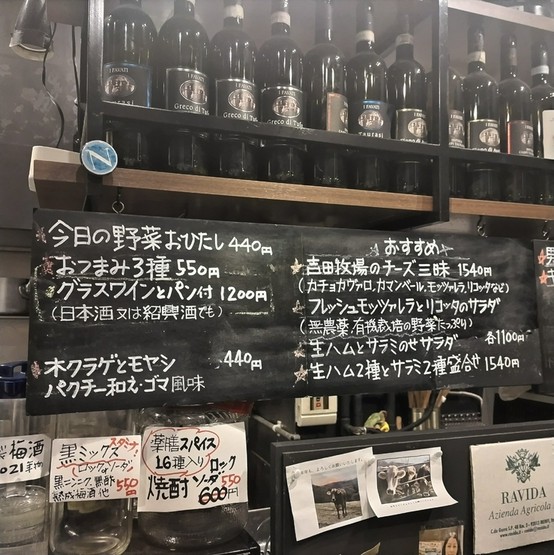 I FAVATI
I FAVATI
Greco di Tufo
Greco di Tufo
N
今日の野菜おひたし 440円
おつまみ3種 550円
グラスワインとパン付 1200円
(日本酒又は紹興酒でも)
木クラゲとモヤシ 440円
パクチー和え・ゴマ風味
おすすめ
吉田牧場のチーズ三昧 1540円
(カチョカヴァロ、カマンベール、モッツァレラ、リコッタなど)
フレッシュモッツァレラとリコッタのサラダ
(無農薬・有機栽培の野菜たっぷり)
生ハムとサラミのせサラダ 各1100円
生ハム2種とサラミ2種盛合せ 1540円
梅酒
黒ミックス スタミナ!
ロックorソーダ
黒ニンニク、黒酢
熟成梅酒他 550円
薬膳スパイス
16種入り ロック 550
焼酎 ソーダ 600円
RAVIDA
Azienda Agricola